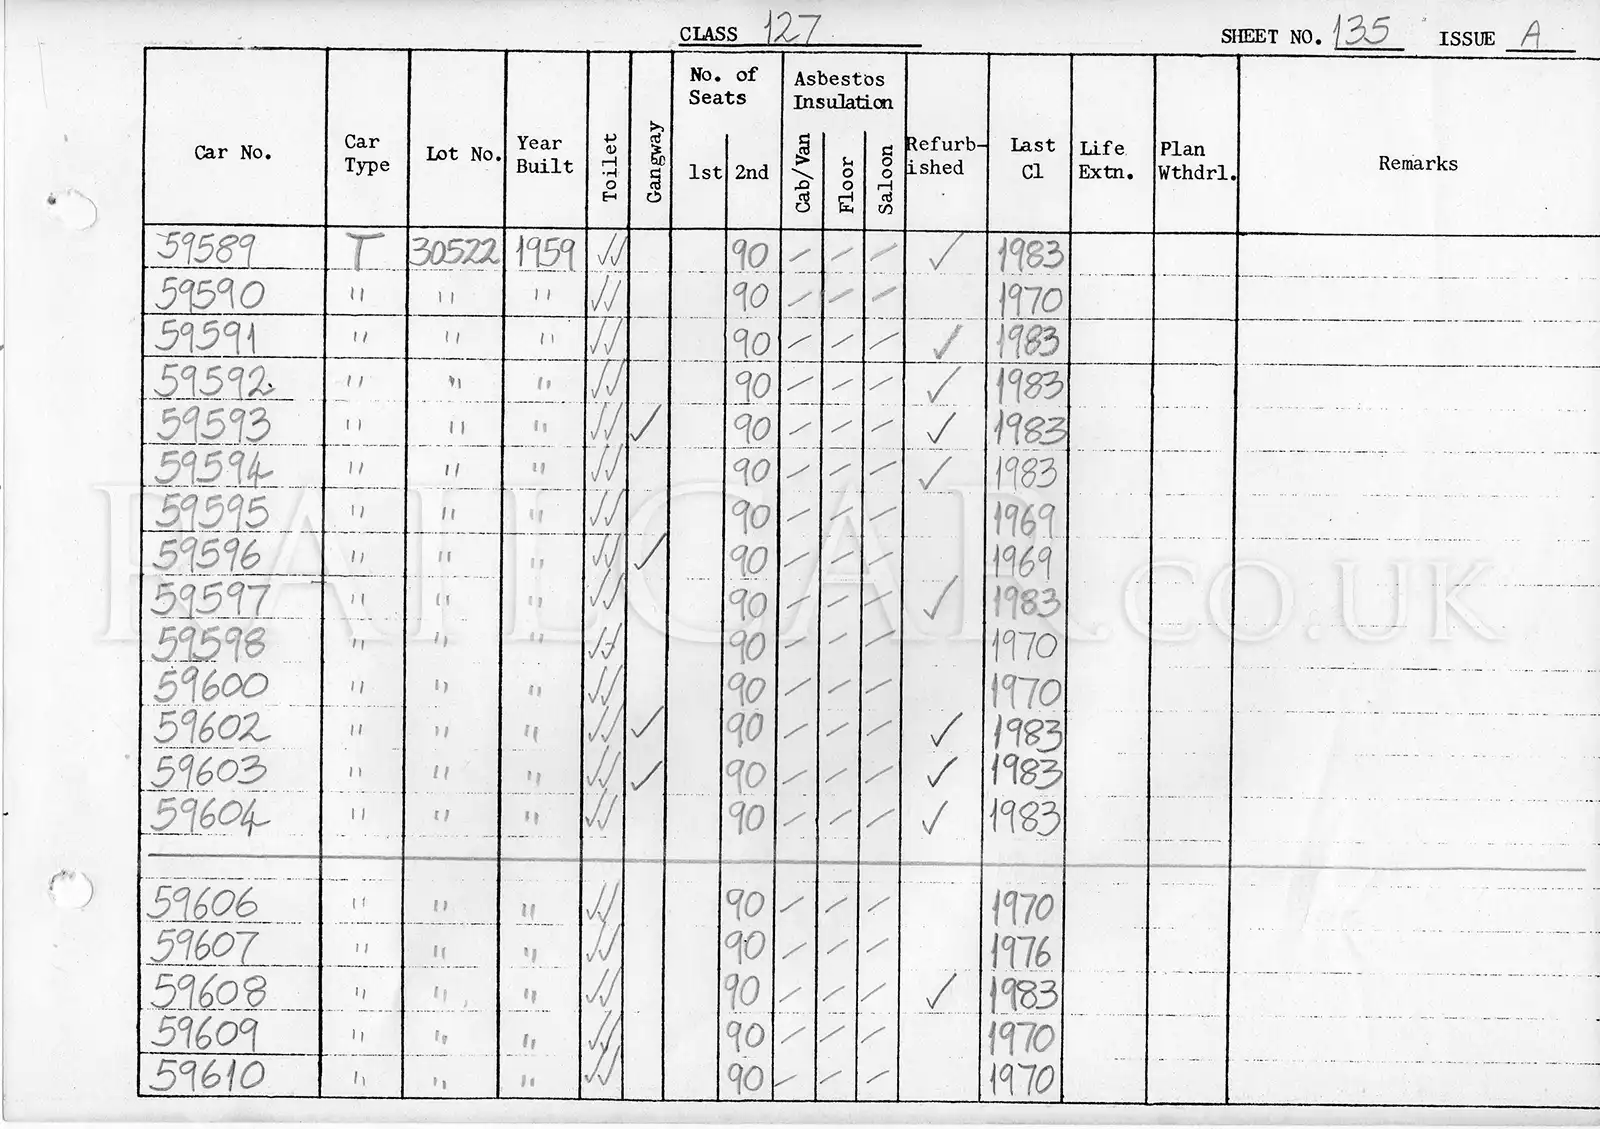 CLASS 127 SHEET NO. 135 ISSUE A
Car No. Car Type Lot No. Year Built Toilet Gangway No. of Seats 1st 2nd Asbestos Insulation Cab/Van Floor Saloon Refurb-ished Last Cl Life Extn. Plan Wthdrl. Remarks
59589 T 30522 1959 ✓✓ 90 / / / ✓ 1983
59590 " " " ✓✓ 90 / / / 1970
59591 " " " ✓✓ 90 / / / ✓ 1983
59592 " " " ✓✓ 90 / / / ✓ 1983
59593 " " " ✓✓ ✓ 90 / / / ✓ 1983
59594 " " " ✓✓ 90 / / / ✓ 1983
59595 " " " ✓✓ 90 / / / 1969
59596 " " " ✓✓ ✓ 90 / / / 1969
59597 " " " ✓✓ 90 / / / ✓ 1983
59598 " " " ✓✓ 90 / / / 1970
59600 " " " ✓✓ 90 / / / 1970
59602 " " " ✓✓ ✓ 90 / / / ✓ 1983
59603 " " " ✓✓ ✓ 90 / / / ✓ 1983
59604 " " " ✓✓ 90 / / / ✓ 1983
59606 " " " ✓✓ 90 / / / 1970
59607 " " " ✓✓ 90 / / / 1976
59608 " " " ✓✓ 90 / / / ✓ 1983
59609 " " " ✓✓ 90 / / / 1970
59610 " " " ✓✓ 90 / / / 1970
RAILCAR.CO.UK